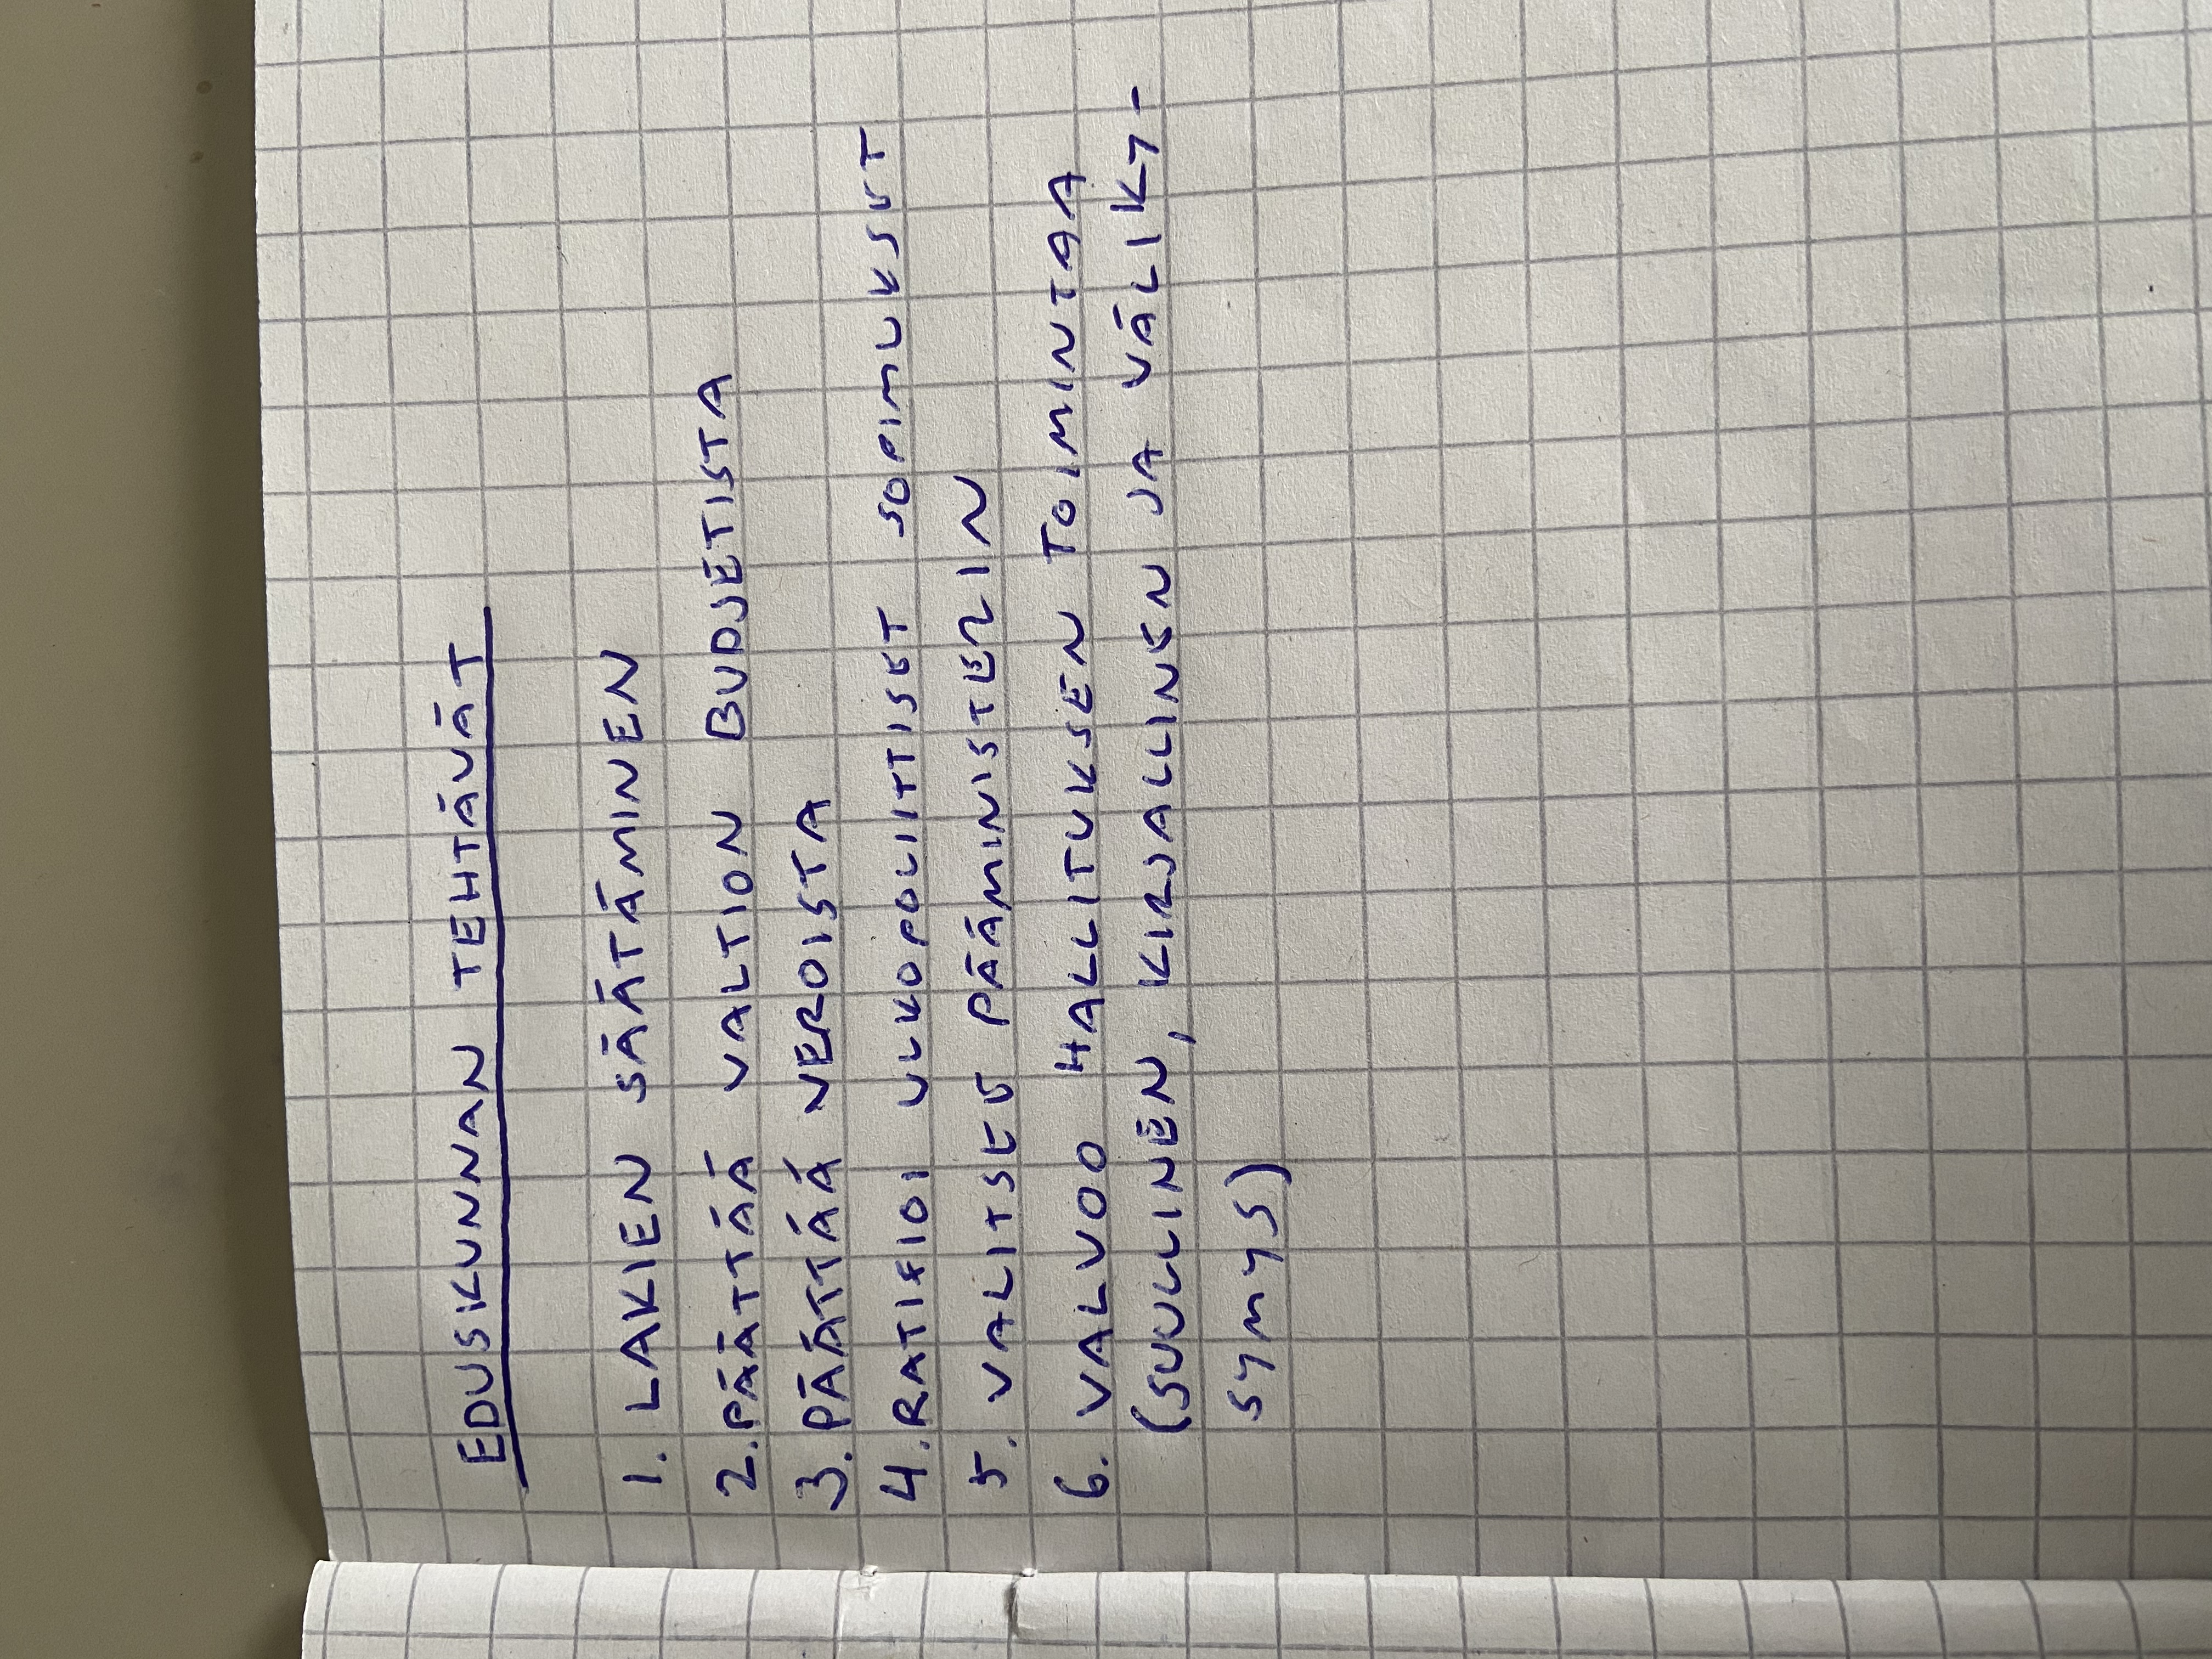 EDUSKUNNAN TEHTÄVÄT
1. LAKIEN SÄÄTÄMINEN
2. PÄÄTTÄÄ VALTION BUDJETISTA
3. PÄÄTTÄÄ VEROISTA
4. RATIFIOI ULKOPOLIITTISET SOPIMUKSET
5. VALITSEE PÄÄMINISTERIN
6. VALVOO HALLITUKSEN TOIMINTAA
(SUULLINEN, KIRJALLINEN JA VÄLIKY-
SYMYS)